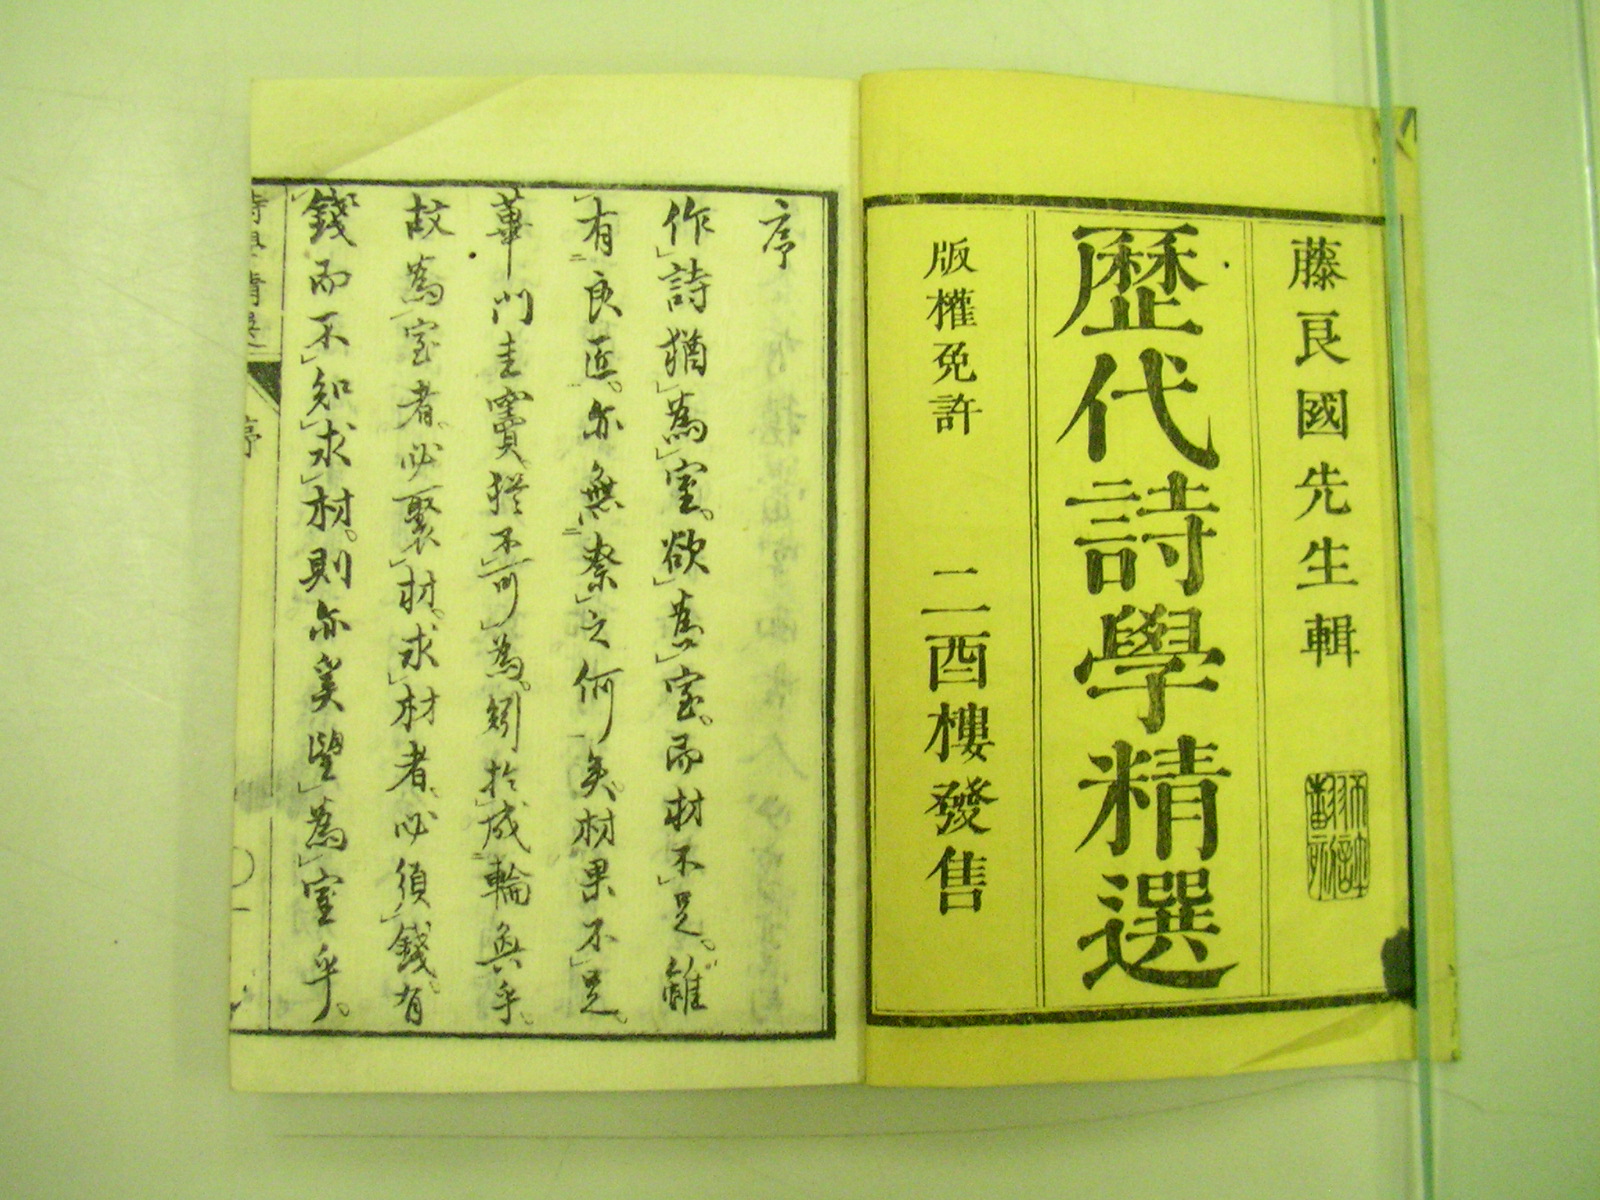 藤良國先生輯
歷代詩學精選
版權免許　二酉樓發售
序
作詩猶為室。欲為室。而材不足。雖
有良匠。亦無奈之何矣。材果不足。
蓽門圭竇猶不可為。矧於成輪奐乎。
故為室者。必聚材。求材者。必須錢。有
錢而不知求材。則亦奚望為室乎。
詩學精選
序